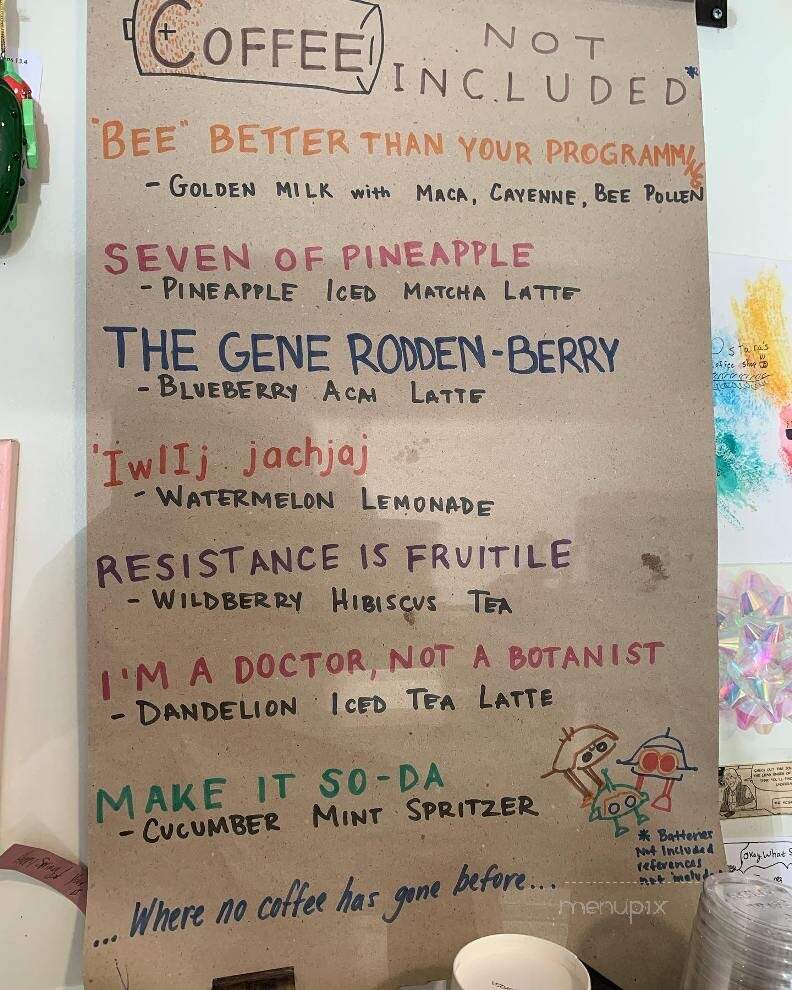 +
COFFEE
NOT
INCLUDED*
"BEE" BETTER THAN YOUR PROGRAMMING
- GOLDEN MILK with MACA, CAYENNE, BEE POLLEN
SEVEN OF PINEAPPLE
- PINEAPPLE ICED MATCHA LATTE
THE GENE RODDEN-BERRY
- BLUEBERRY ACAI LATTE
'IwlIj jachjaj
- WATERMELON LEMONADE
RESISTANCE IS FRUITILE
- WILDBERRY HIBISCUS TEA
I'M A DOCTOR, NOT A BOTANIST
- DANDELION ICED TEA LATTE
MAKE IT SO-DA
- CUCUMBER MINT SPRITZER
* Batteries
Not Included
references
not
... Where no coffee has gone before...
menupix
Okay, What